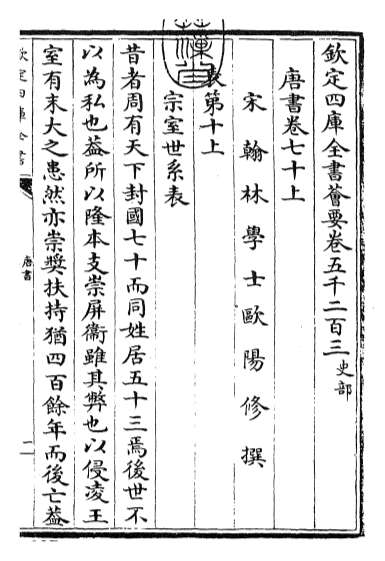 欽定四庫全書薈要卷五千二百三史部
唐書卷七十上
宋翰林學士歐陽修撰
表第十上
宗室世系表
昔者周有天下封國七十而同姓居五十三焉後世不
以為私也葢所以隆本支崇屏衞雖其弊也以侵凌王
室有末大之患然亦崇奬扶持猶四百餘年而後亡葢
欽定四庫全書
唐書